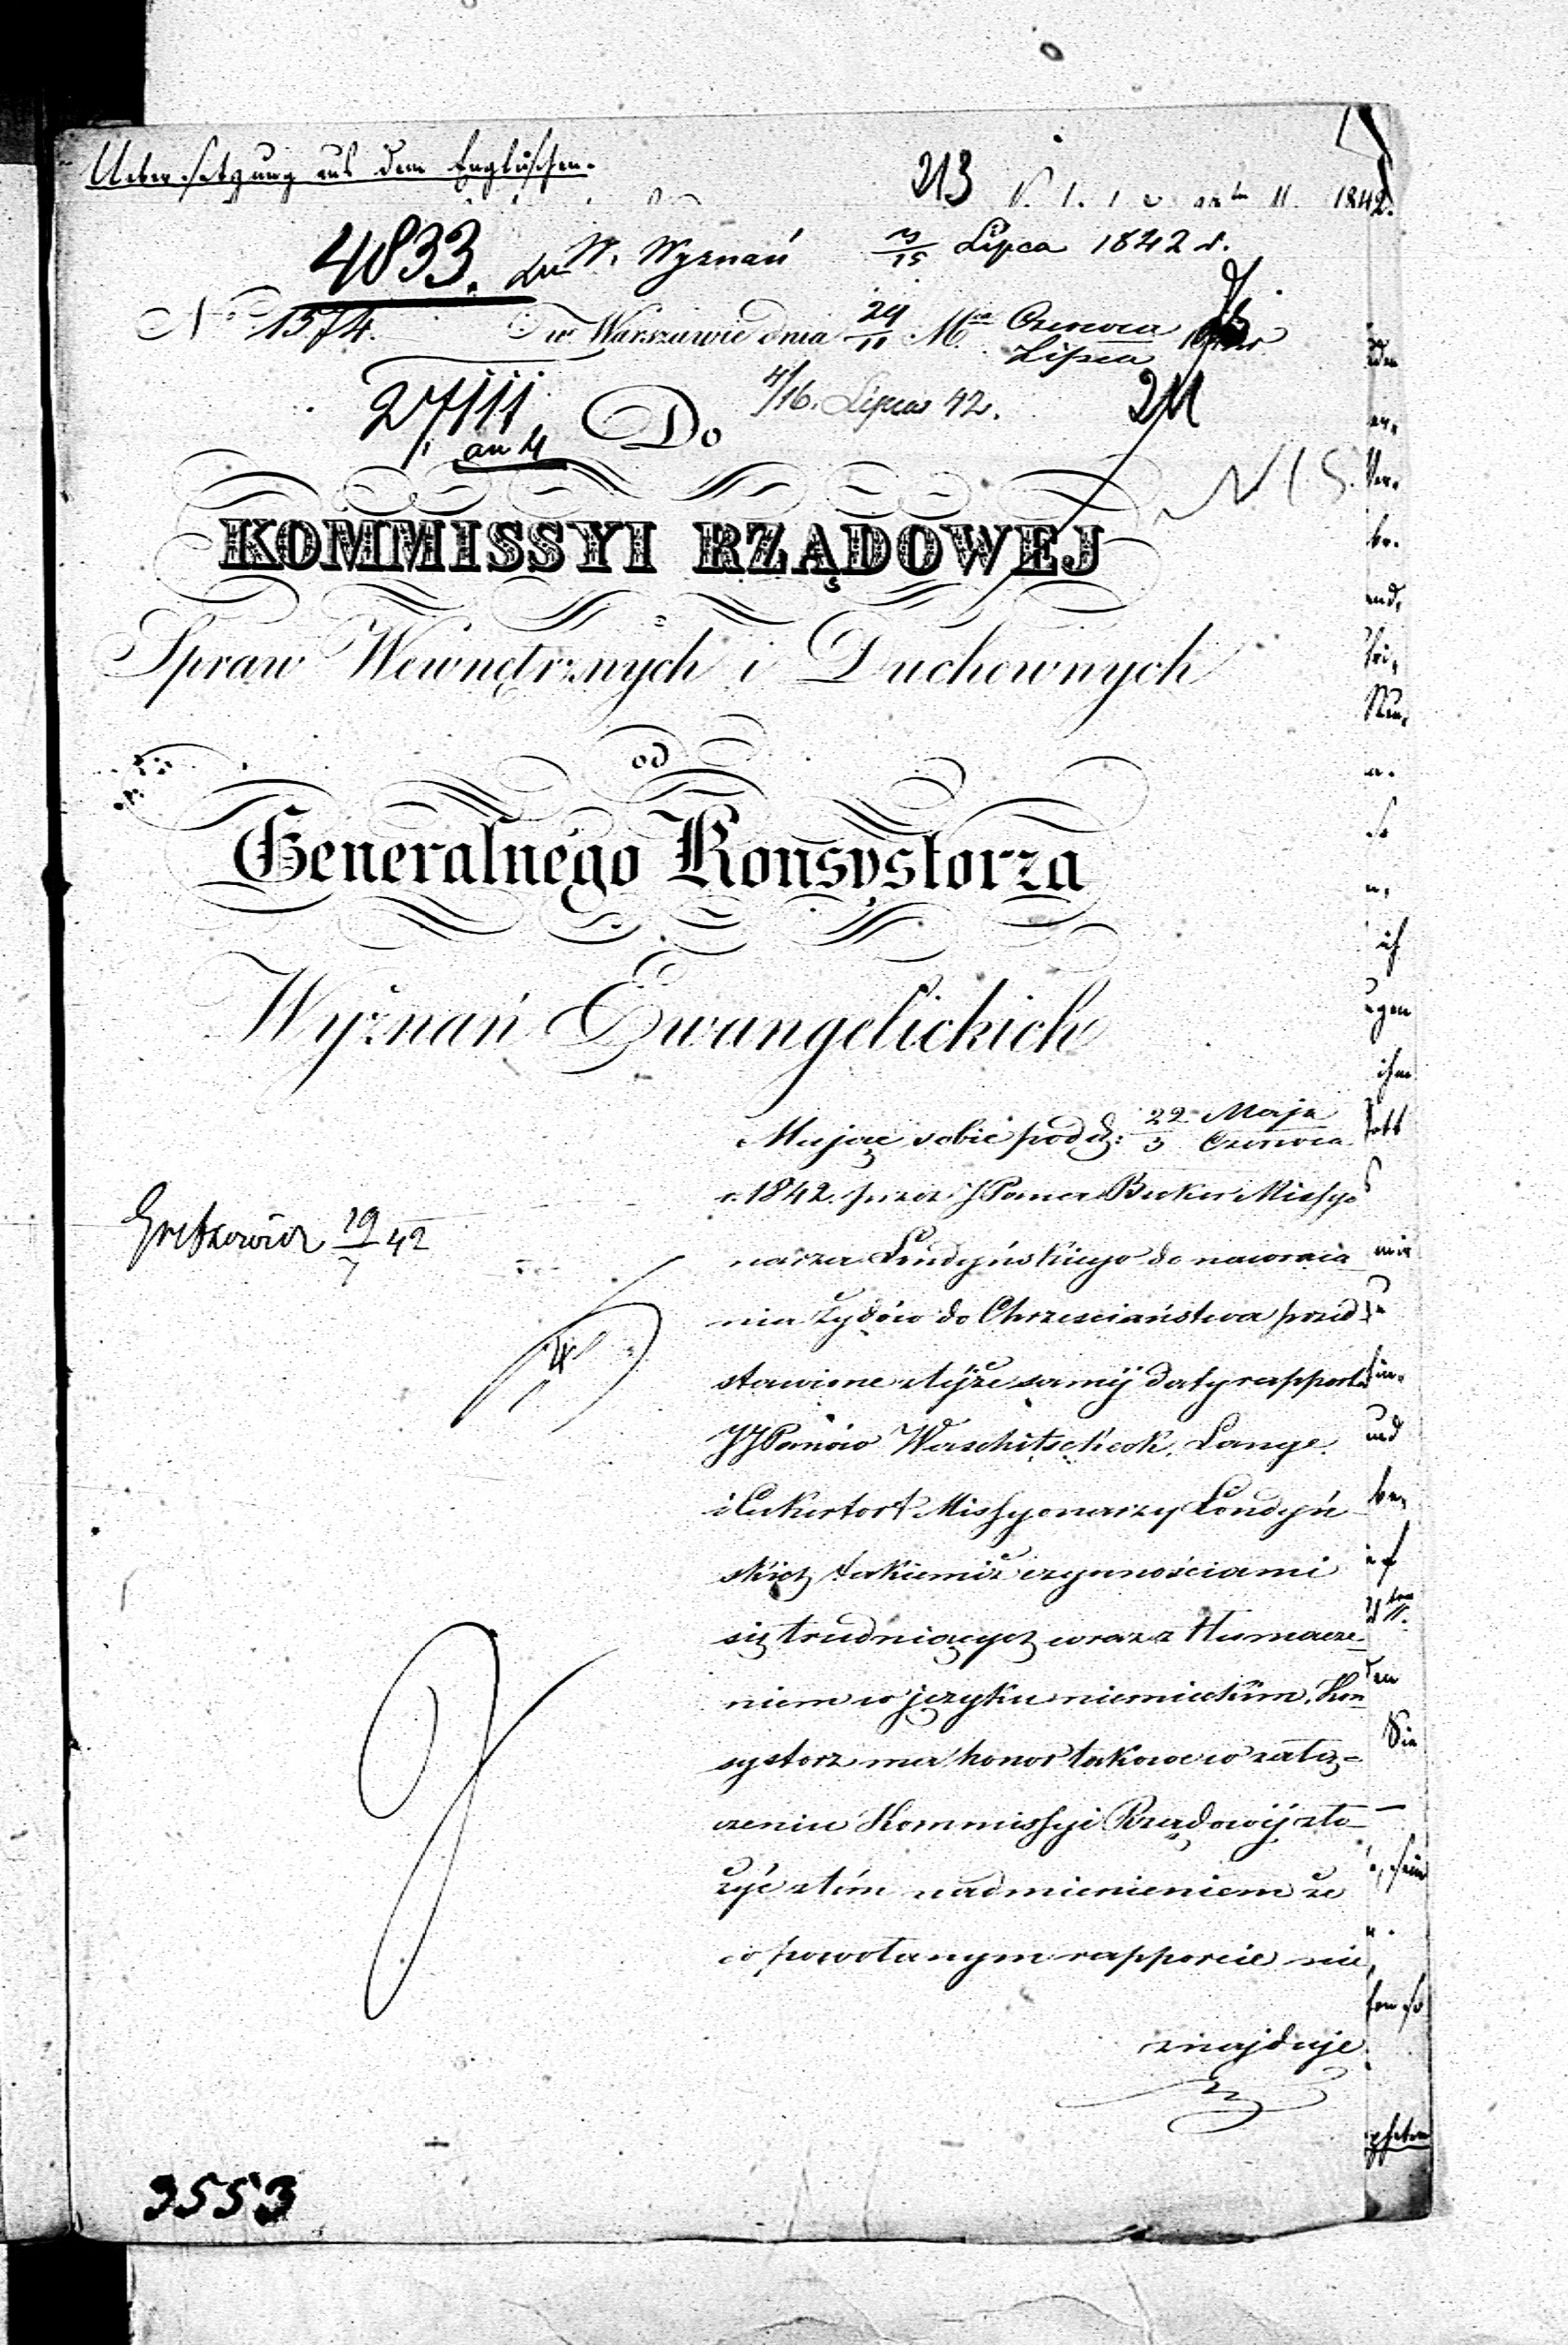 Uebersetzung aus dem Englischen.
213 1842.
4833. W. Wyznań 3/15 Lipca 1842 r.
No 1574. w Warszawie dnia 29/11 Mca Czerwca/Lipca
27/111 Do 4/16. Lipca 42. 211
an 4
KOMMISSYI RZĄDOWEJ
Spraw Wewnętrznych i Duchownych
od
Generalnego Konsystorza
Wyznań Ewangelickich
Mając sobie pod d: 22 Maja/3 Czerwca
r. 1842. przez JPana Becker Missyo
narza Londyńskiego do nawraca
nia Żydów do Chrześciaństwa przed
stawione z tejże saméj daty rapporta
JJPanów Waschitscheck, Lange
i Cukertort Missyonarzy Londyń
skich takiemiż czynnościami
się trudniących wraz z tłumacze
niem w języku niemieckim, Kon
systorz ma honor takowe w załą=
czeniu Kommissyi Rządowéj zło
żyć z tém nadmienieniem że
w powołanym rapporcie nie
znajduje
19/7 42
4
3553